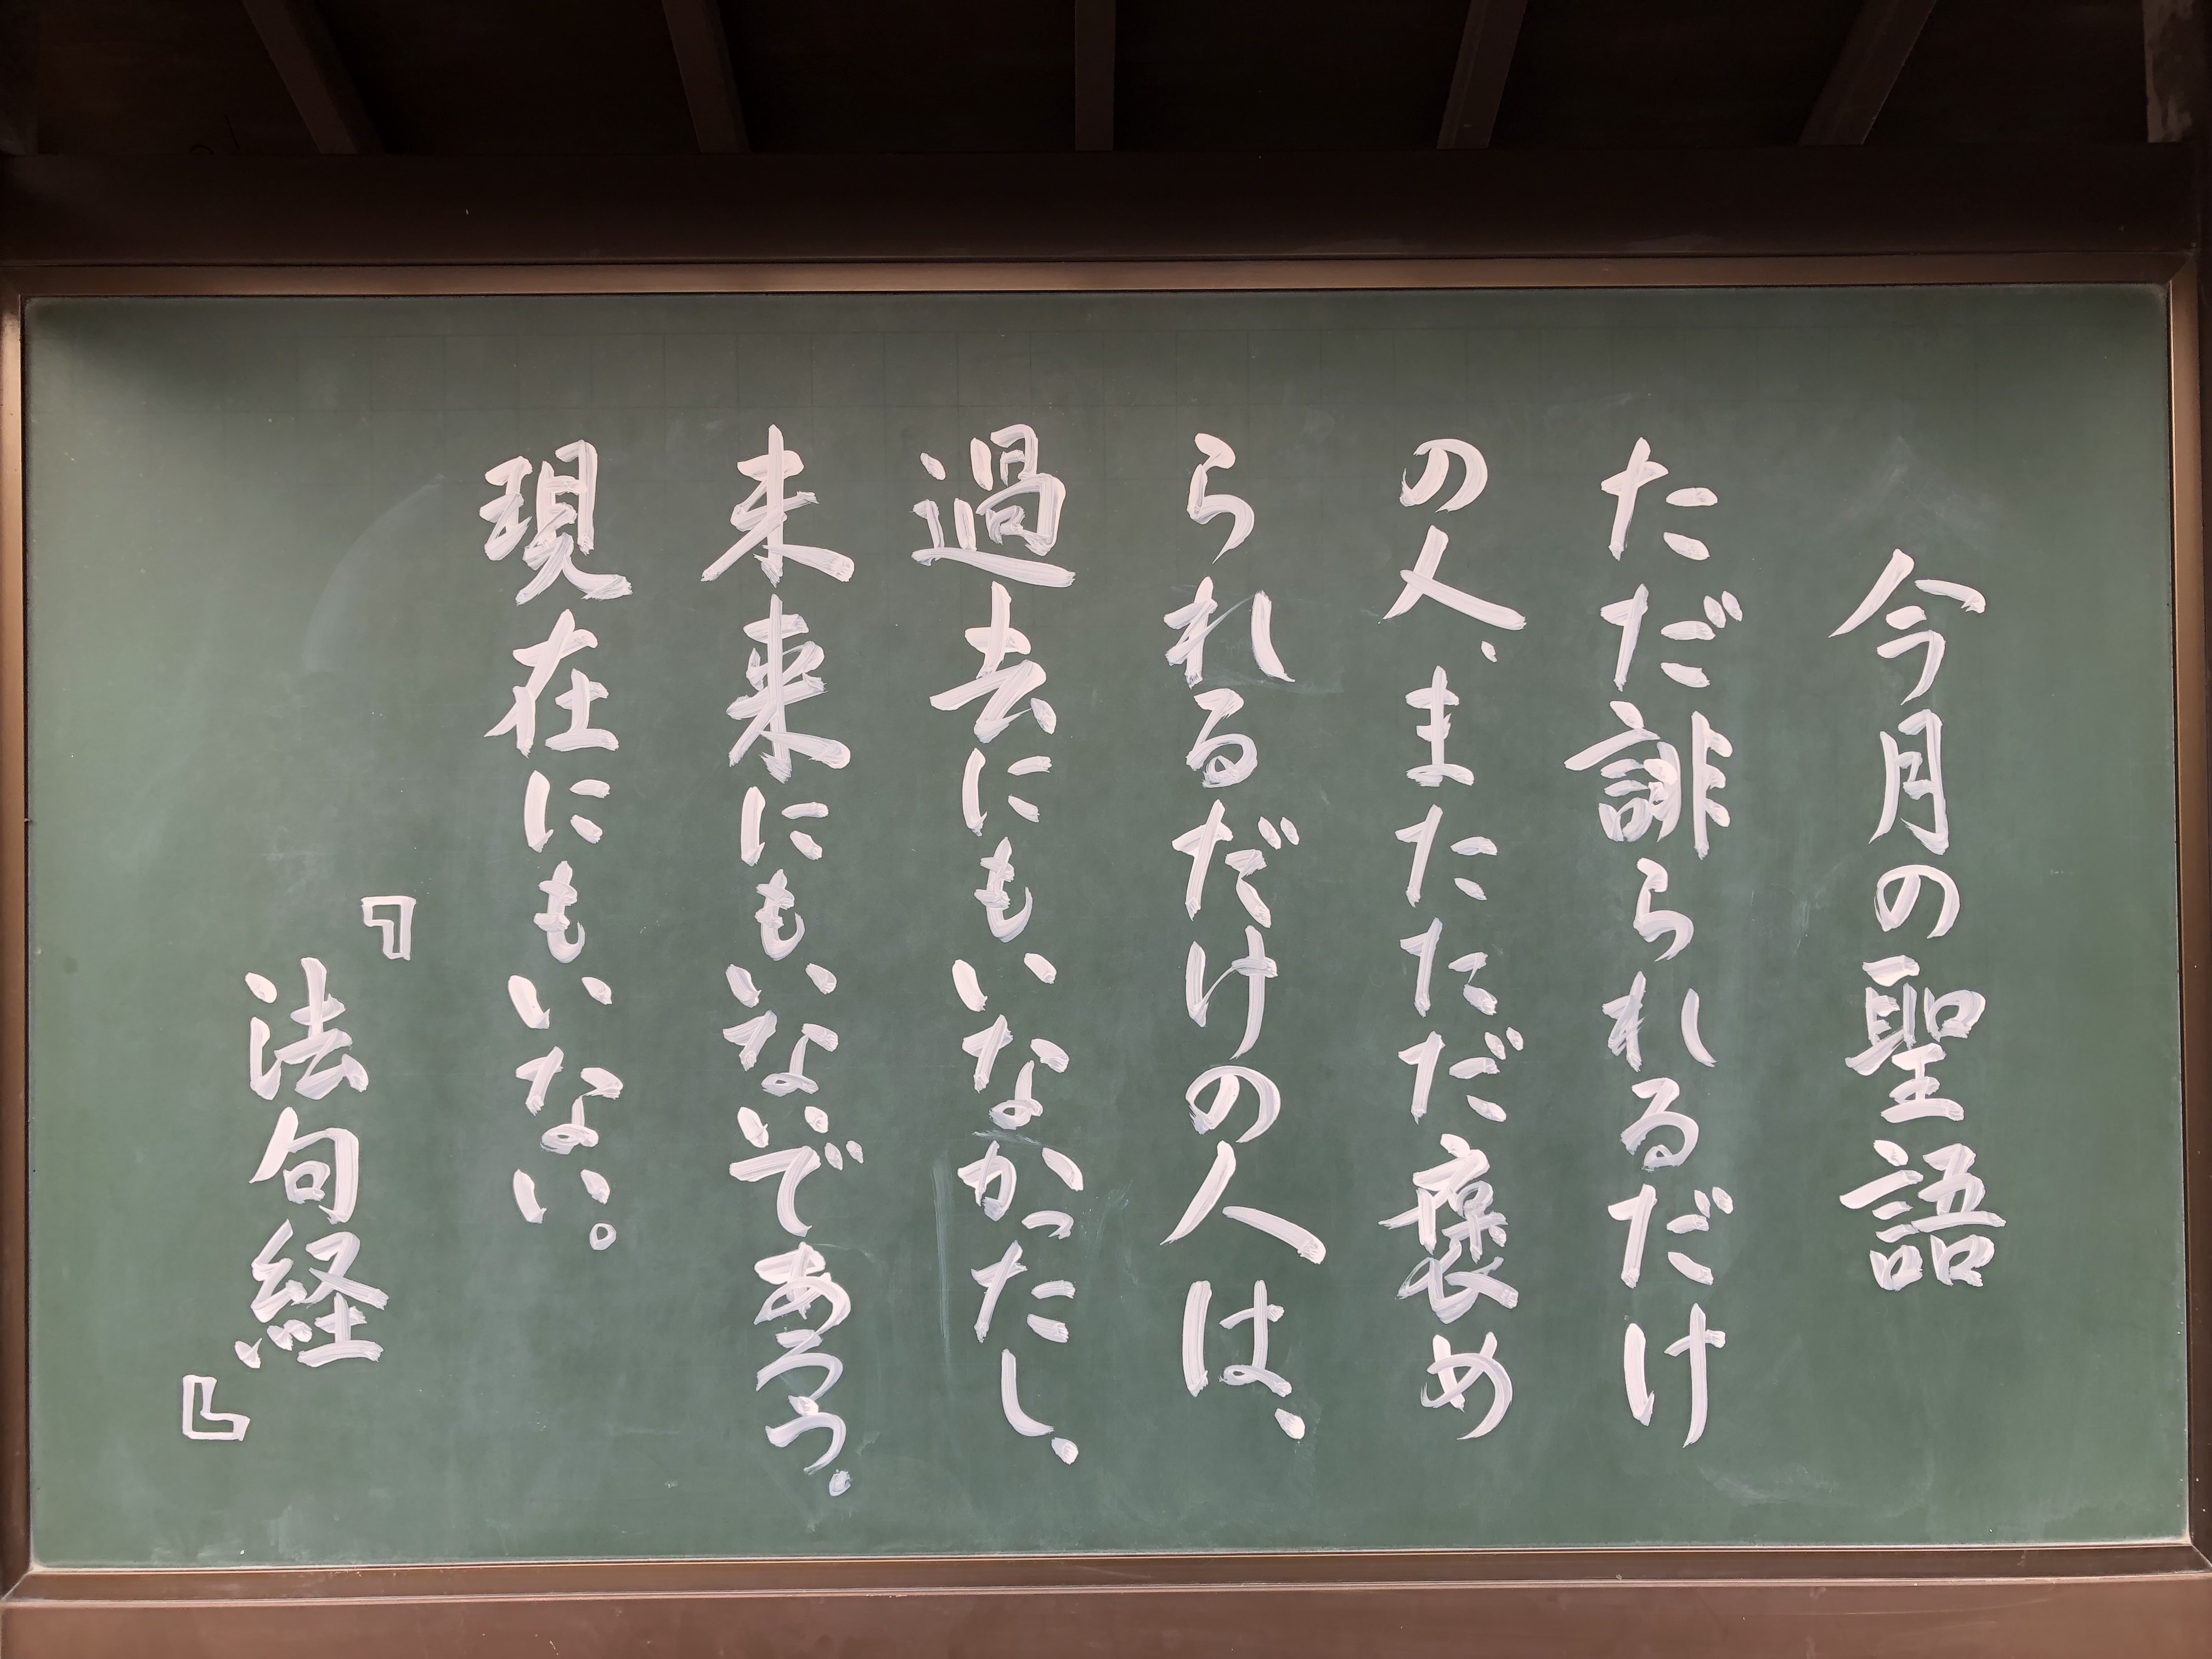 今月の聖語
ただ誹られるだけ
の人、またただ褒め
られるだけの人は、
過去にもいなかったし、
未来にもいないであろう。
現在にもいない。
『法句経』